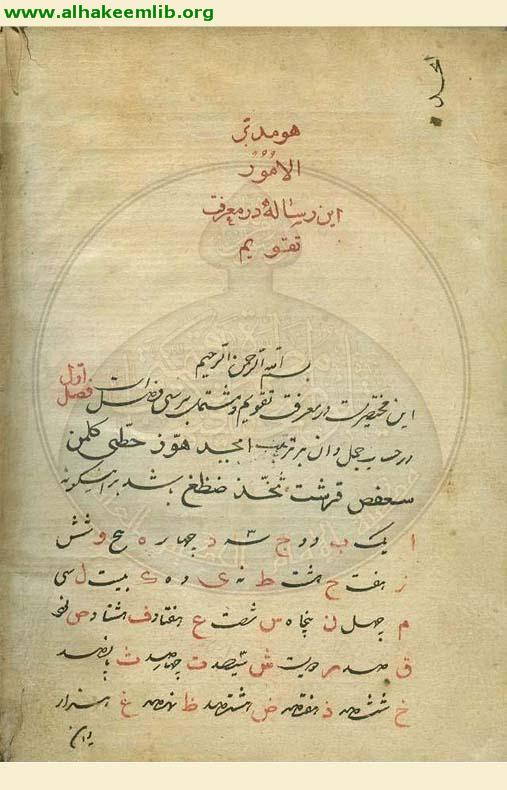 www.alhakeemlib.org
هو مدبر
الامور
این رساله در معرفت
تقویم
بسم الله الرحمن الرحیم
این مختصریست در معرفت تقویم و مشتمل بر سی فصل است فصل اول
در حساب جمل و آن بر ترتیب ابجد هوز حطی کلمن
سعفص قرشت ثخذ ضظغ باشد براینکونه
ا یک ب دو ج سه د چهار ه پنج و شش
ز هفت ح هشت ط نه ی ده ک بیست ل سی
م چهل ن پنجاه س شصت ع هفتاد ف هشتاد ص نود
ق صد ر دویست ش سیصد ت چهارصد ث پانصد
خ ششصد ذ هفتصد ض هشتصد ظ نهصد غ هزار